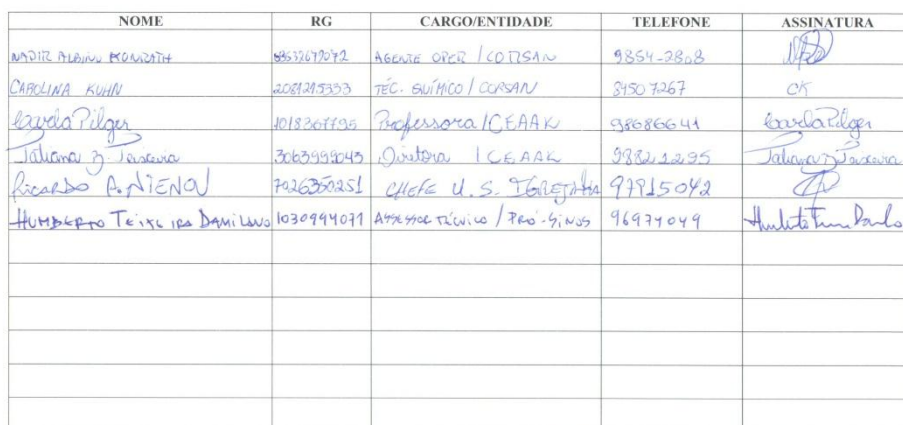 NOME RG CARGO/ENTIDADE TELEFONE ASSINATURA
NADIR ALBINO KONRATH AGENTE OPER / CORSAN 9854-2808
CAROLINA KUHN 2081295333 TÉC. QUÍMICO / CORSAN 84507267 CK
Carla Pilger 1018367795 Professora / CEAAK 98686641 Carla Pilger
Tatiana Z. Teixeira 3063999043 Diretora / CEAAK 98821295 Tatiana Z. Teixeira
RICARDO A. NIENOV 7026350251 CHEFE U.S. IGREJINHA 97915042
HUMBERTO TEIXEIRA DAMILANO 1030994071 ASSESSOR TÉCNICO / PRÓ-SINOS 96977049